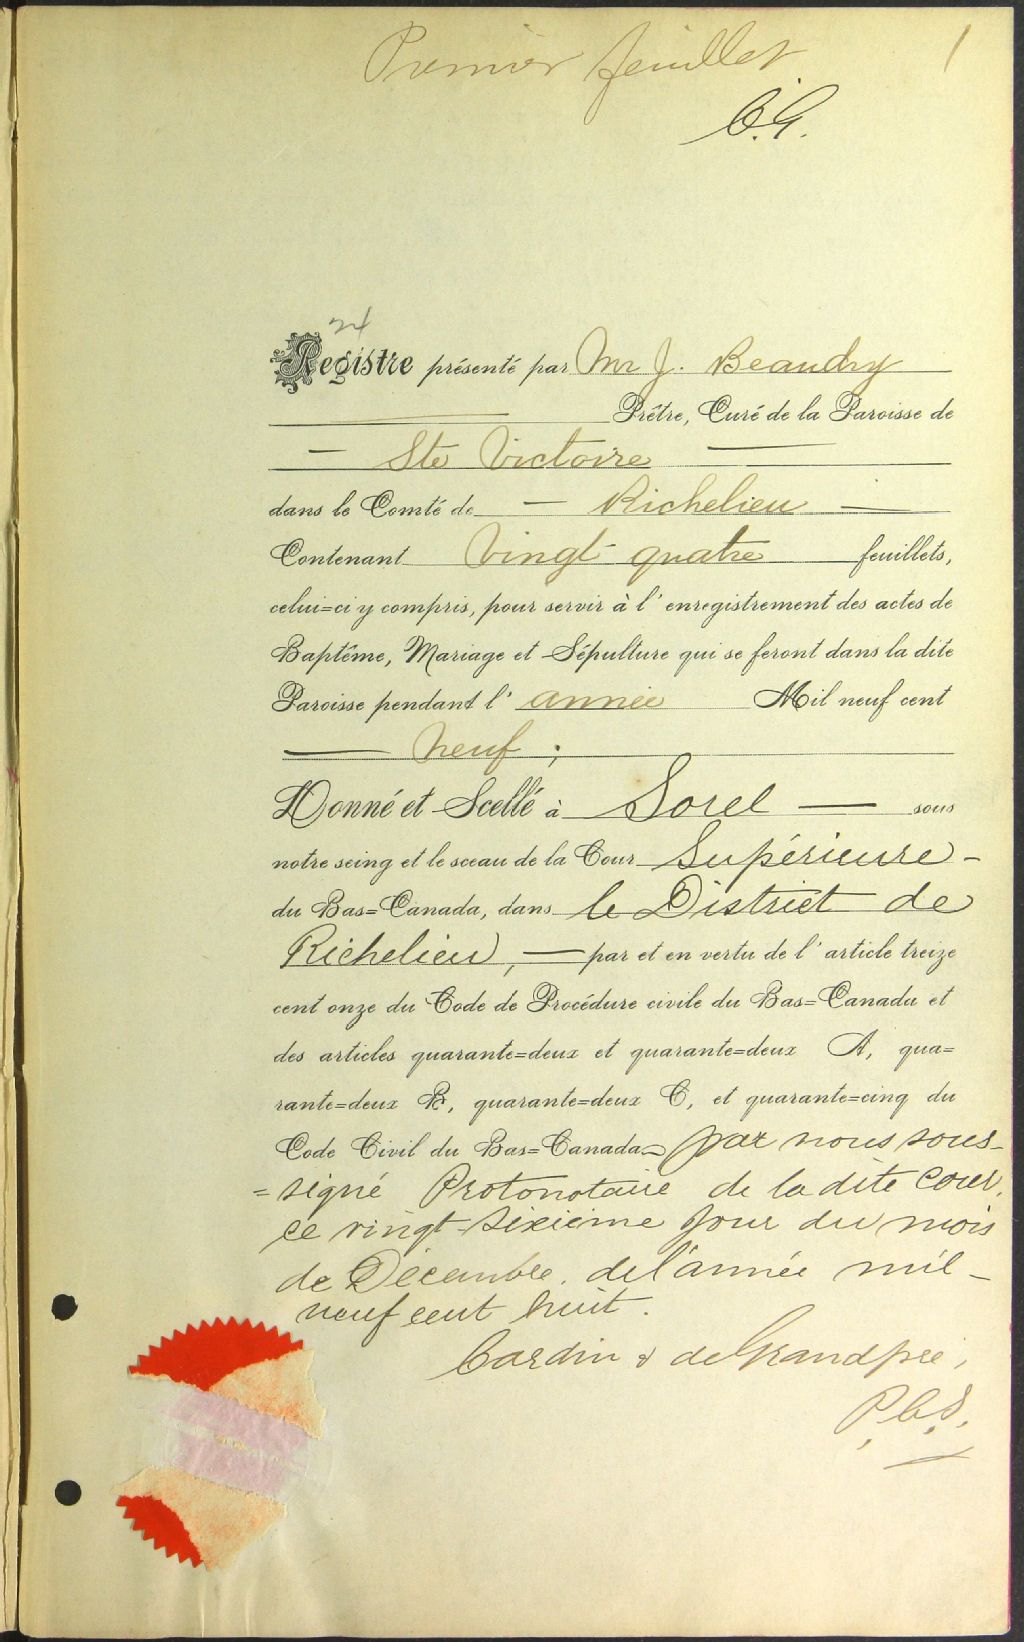 Premier feuillet 1
C.G.
24
Registre présenté par Mr J. Beaudry
Prêtre, Curé de la Paroisse de
— Ste Victoire —
dans le Comté de — Richelieu —
Contenant Vingt-quatre feuillets,
celui=ci y compris, pour servir à l'enregistrement des actes de
Baptême, Mariage et Sépulture qui se feront dans la dite
Paroisse pendant l'année Mil neuf cent
— neuf ;
Donné et Scellé à Sorel — sous
notre seing et le sceau de la Cour Supérieure -
du Bas=Canada, dans le District de
Richelieu, — par et en vertu de l'article treize
cent onze du Code de Procédure civile du Bas=Canada et
des articles quarante=deux et quarante=deux A, qua=
rante=deux B, quarante=deux C, et quarante=cinq du
Code Civil du Bas=Canada par nous sous-
=signé Protonotaire de la dite Cour,
ce vingt-sixieme jour du mois
de Décembre, de l'année mil-
neuf cent huit.
Cardin & deGrandpré,
P.C.S.